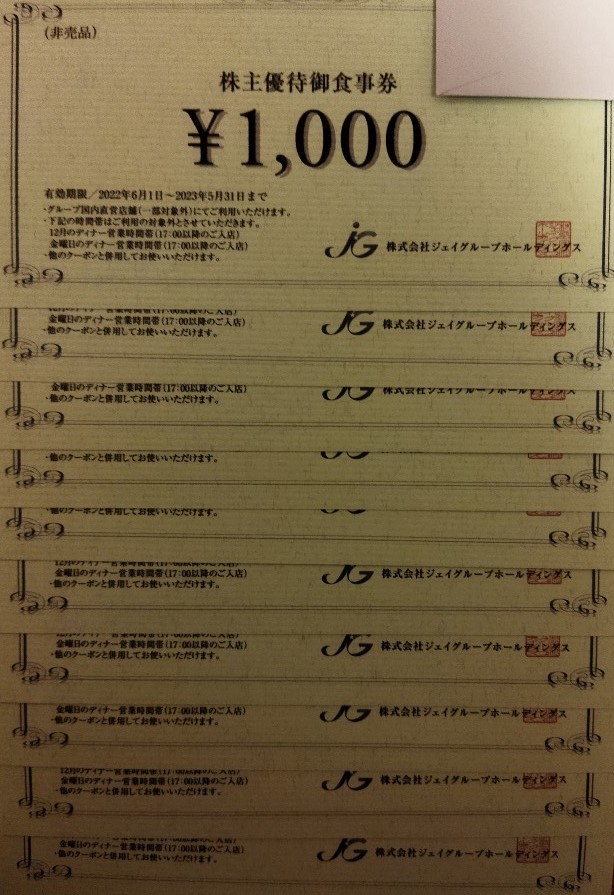 (非売品)
株主優待御食事券
¥1,000
有効期限/2022年6月1日～2023年5月31日まで
・グループ国内直営店舗(一部対象外)にてご利用いただけます。
・下記の時間帯はご利用の対象外とさせていただきます。
12月のディナー営業時間帯(17:00以降のご入店)
金曜日のディナー営業時間帯(17:00以降のご入店)
・他のクーポンと併用してお使いいただけます。
JG 株式会社ジェイグループホールディングス
12月のディナー営業時間帯(17:00以降のご入店)
金曜日のディナー営業時間帯(17:00以降のご入店)
・他のクーポンと併用してお使いいただけます。
JG 株式会社ジェイグループホールディングス
金曜日のディナー営業時間帯(17:00以降のご入店)
・他のクーポンと併用してお使いいただけます。
JG 株式会社ジェイグループホールディングス
・他のクーポンと併用してお使いいただけます。
・他のクーポンと併用してお使いいただけます。
12月のディナー営業時間帯(17:00以降のご入店)
金曜日のディナー営業時間帯(17:00以降のご入店)
・他のクーポンと併用してお使いいただけます。
JG 株式会社ジェイグループホールディングス
12月のディナー営業時間帯(17:00以降のご入店)
金曜日のディナー営業時間帯(17:00以降のご入店)
・他のクーポンと併用してお使いいただけます。
JG 株式会社ジェイグループホールディングス
金曜日のディナー営業時間帯(17:00以降のご入店)
・他のクーポンと併用してお使いいただけます。
JG 株式会社ジェイグループホールディングス
12月のディナー営業時間帯(17:00以降のご入店)
金曜日のディナー営業時間帯(17:00以降のご入店)
・他のクーポンと併用してお使いいただけます。
JG 株式会社ジェイグループホールディングス
金曜日のディナー営業時間帯(17:00以降のご入店)
・他のクーポンと併用してお使いいただけます。
JG 株式会社ジェイグループホールディングス